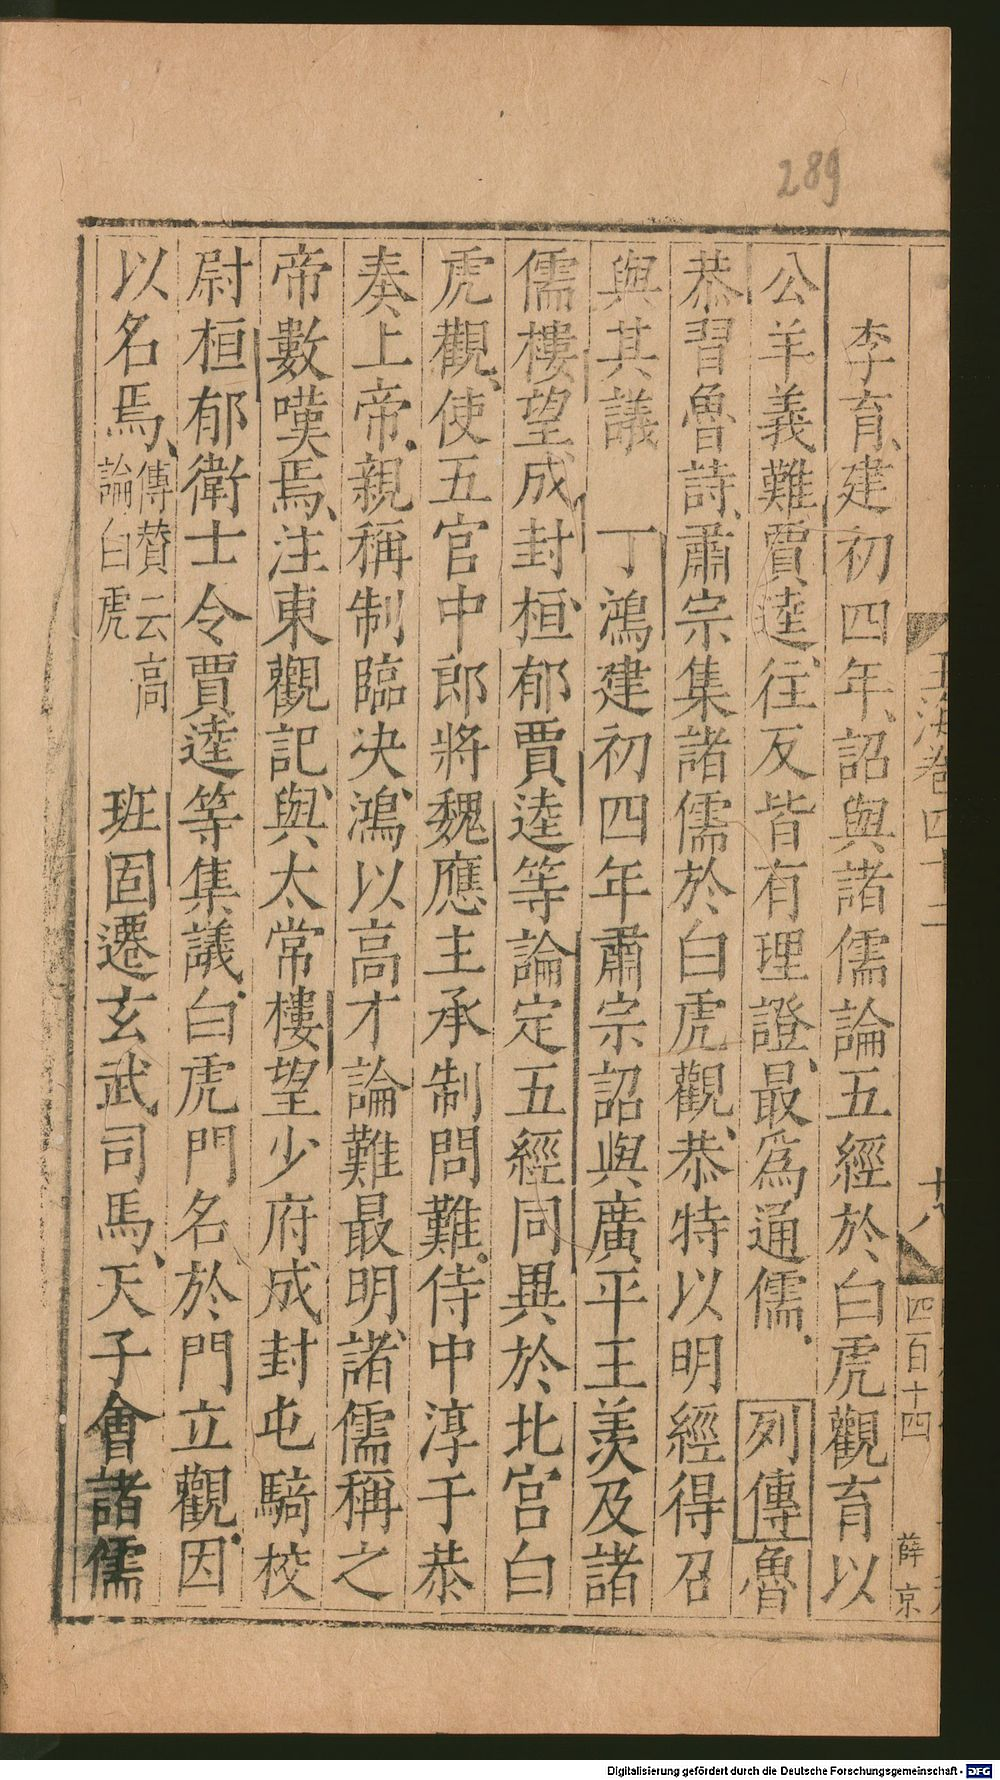 289
玉海卷四十二
十八
四百十四
薛京
李育建初四年詔與諸儒論五經於白虎觀育以
公羊義難賈逵往反皆有理證最爲通儒 列傳 魯
恭習魯詩肅宗集諸儒於白虎觀恭特以明經得召
與其議 丁鴻建初四年肅宗詔與廣平王羡及諸
儒樓望成封桓郁賈逵等論定五經同異於北宮白
虎觀使五官中郎將魏應主承制問難侍中淳于恭
奏上帝親稱制臨決鴻以高才論難最明諸儒稱之
帝數嘆焉注東觀記與太常樓望少府成封屯騎校
尉桓郁衛士令賈逵等集議白虎門名於門立觀因
以名焉 傳贊云高
論白虎
班固遷玄武司馬天子會諸儒
Digitalisierung gefördert durch die Deutsche Forschungsgemeinschaft - DFG